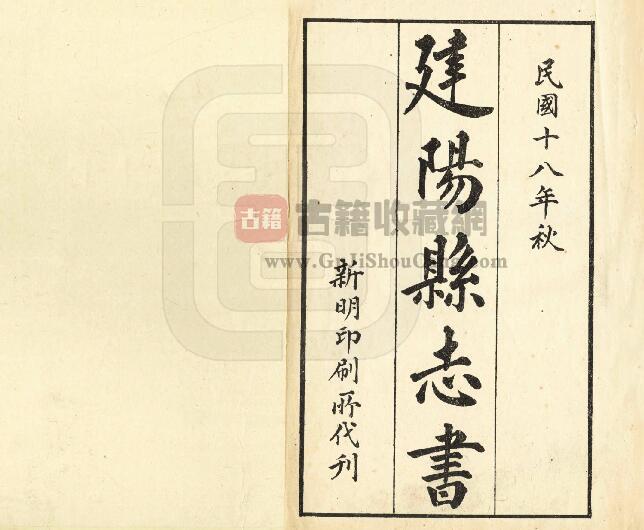 民國十八年秋
建陽縣志書
新明印刷所代刊
古籍
古籍收藏網
www.GuJiShouCang.com